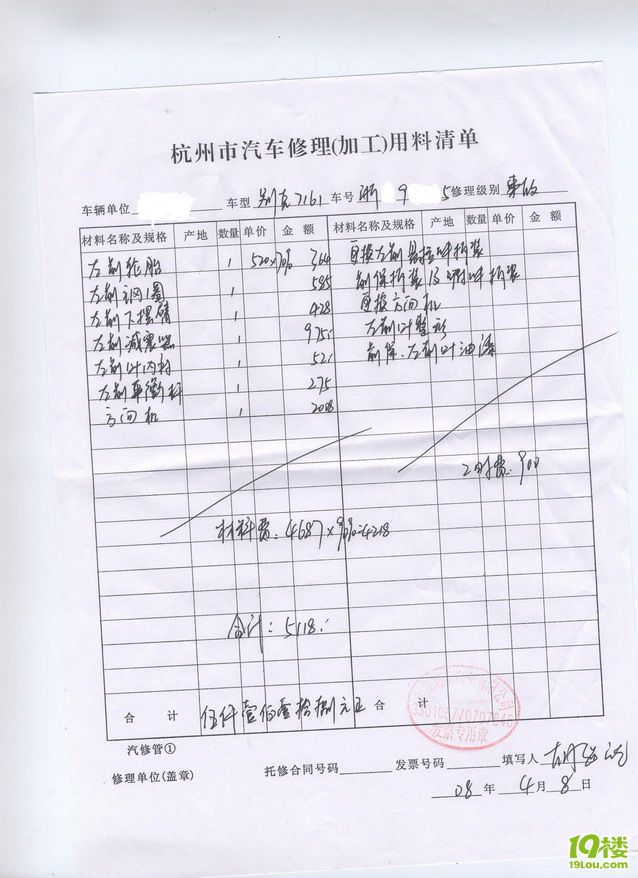 杭州市汽车修理(加工)用料清单
车辆单位 车型 别克7161 车号 浙 9 5 修理级别 事故
材料名称及规格 产地 数量 单价 金 额 材料名称及规格 产地 数量 单价 金 额
左前轮胎 1 520×70% 364
左前钢圈 1 585
左前下摆臂 1
左前减震器 1 975
左前叶内衬 1 521
左前平衡杆 1 275
方向机 1
更换左前悬挂件拆装
前保拆装及附件拆装
更换方向机
左前叶整形
前保、左前叶油漆
工时费:900
材料费:4687×90%=4218
合计:5118.
合 计 伍仟壹佰壹拾捌元正 合 计
发票专用章
汽修管①
修理单位(盖章) 托修合同号码 发票号码 填写人
08 年 4 月 8 日
19楼
19lou.com